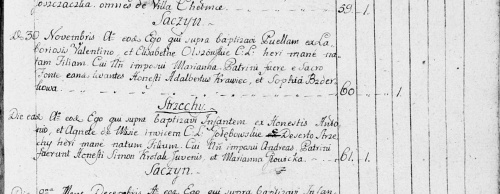 omnes de Villa Chelmce 59. 1.
Jaczyn
Die 30 Novembris A° eod. Ego qui supra baptizavi Puellam ex La-
boriosis Valentino, et Elisabethe C.L. heri mane na-
tam Filiam Cui Nn imposui Marianna Patrini fuere e Sacro
Fonte eam levantes Honesti Adalbertus Krawiec, et Sophia
kowa. 60 1
Strzechy
Die ead. A° eod. Ego qui supra baptizavi Infantem ex Honestis Anto-
nio, et Agnete de C.L. de Deserto Strze-
chy heri mane natum Filium Cui Nn imposui Andreas Patrini
fuerunt Honesti Simon Juvenis et Marianna 61. 1.
Jaczyn.
Decembris A° eod. Ego qui supra baptizavi